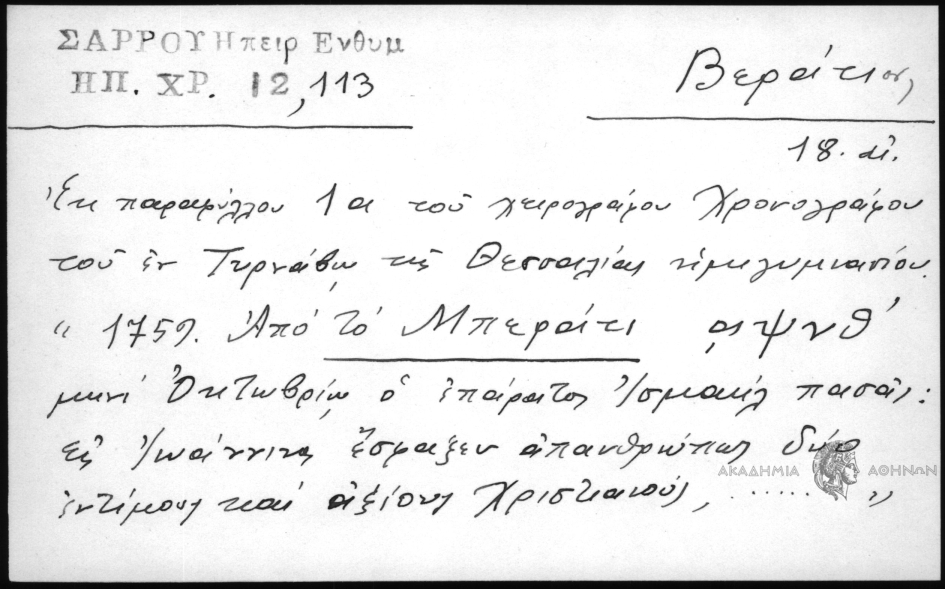 ΣΑΡΡΟΥ Ηπειρ Ενθυμ
ΗΠ. ΧΡ. 12,113
Βεράτιον,
18. αἰ.
Ἐκ παραφύλλου 1α τοῦ χειρογράφου Χρονογράφου
τοῦ ἐν Τυρνάβῳ τῆς Θεσσαλίας ἡμιγυμνασίου.
" 1759. Ἀπό τό Μπεράτι αςψνθ'
μηνί Ὀκτωβρίῳ ὁ ἐπάρατος Ἰσμαήλ πασᾶς:
εἰς Ἰωάννινα ἔσφαξεν ἀπανθρώπως δύο
ἐντίμους καί ἀξίους Χριστιανούς, ...... "
ΑΚΑΔΗΜΙΑ ΑΘΗΝΩΝ